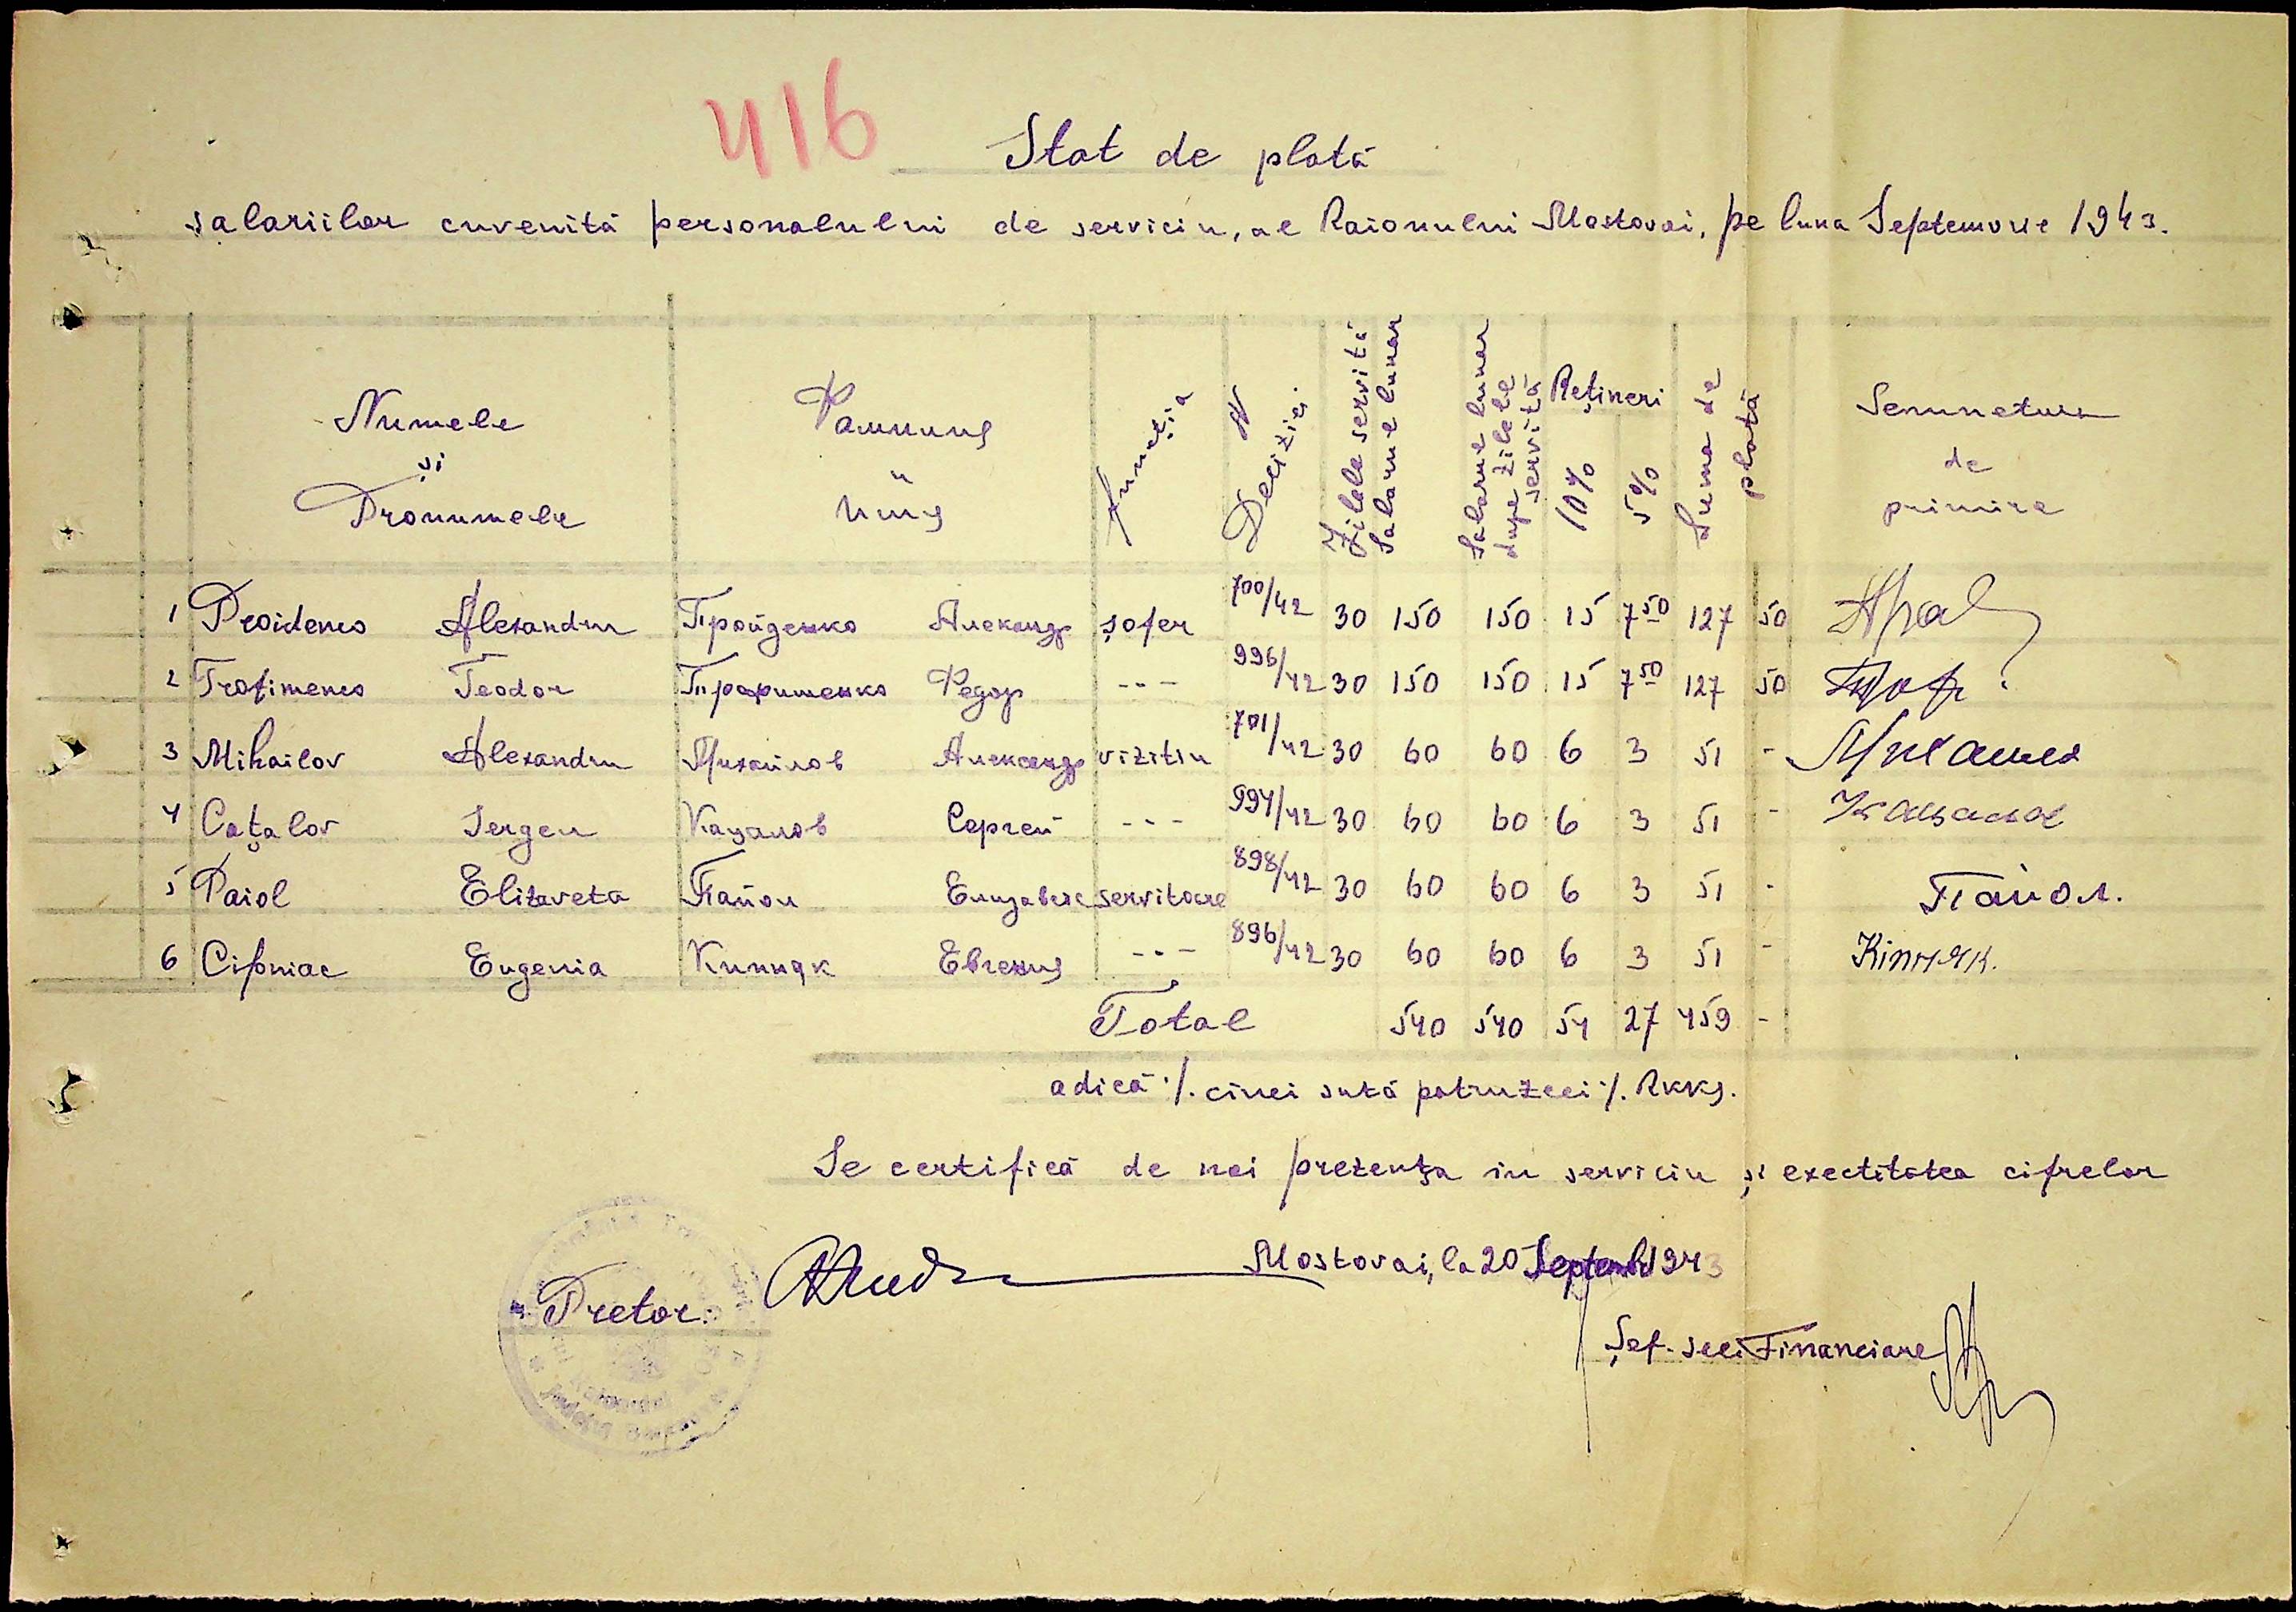 416
Stat de plată
salariilor cuvenită personalului de serviciu, al Raionului Mostovoi, pe luna Septemvrie 1943.
Numele și Pronumele | Фамилия Имя | Funcția | N Deciziei | Zilele servită | Salarul lunar | Salarul lunar dupe zilele servită | Rețineri 10% | 5% | Suma de plată | Semnetura de primire
1 Proidenco Alexandru | Пройденко Александр | șofer | 700/42 | 30 | 150 | 150 | 15 | 7 50 | 127 | 50
2 Trofimenco Teodor | Трофименко Федор | --- | 996/42 | 30 | 150 | 150 | 15 | 7 50 | 127 | 50 | Троф
3 Mihailov Alexandru | Михайлов Александр | vizitiu | 701/42 | 30 | 60 | 60 | 6 | 3 | 51 | -
4 Cațalov Sergeu | Кацалов Сергей | --- | 994/42 | 30 | 60 | 60 | 6 | 3 | 51 | -
5 Paiol Elizaveta | Пайол Елизавета | servitoare | 898/42 | 30 | 60 | 60 | 6 | 3 | 51 | - | Пайол.
6 Cipniac Eugenia | Кипняк Евгения | --- | 896/42 | 30 | 60 | 60 | 6 | 3 | 51 | - | Кіпняк.
Total 540 540 54 27 459 -
adică ·/. cinci sută patruzeci ·/. RKKS.
Se certifică de noi prezența in serviciu și exectitatea cifrelor
Mostovoi, la 20 Septembr 1943
Pretor
Șef. Seci Financiare